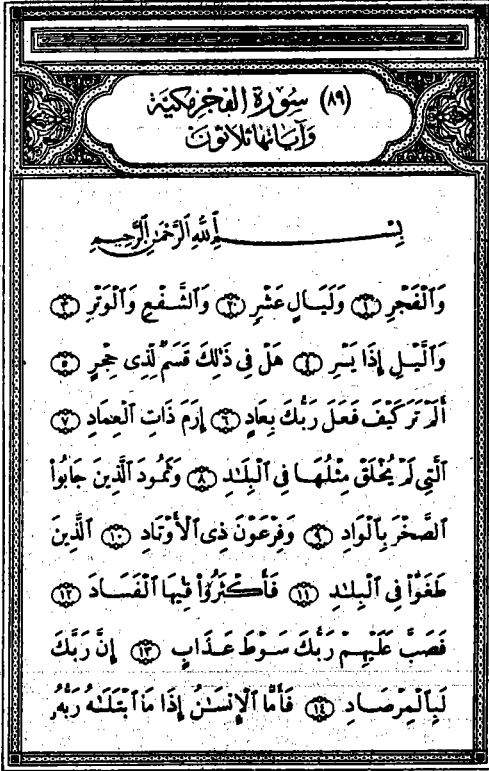 (٨٩) سُورَة الفَجر مكيَّة
وَآيَاتها ثَلاثون
بِسْمِ ٱللَّهِ ٱلرَّحْمَٰنِ ٱلرَّحِيمِ
وَٱلْفَجْرِ ۝١ وَلَيَالٍ عَشْرٍ ۝٢ وَٱلشَّفْعِ وَٱلْوَتْرِ ۝٣
وَٱلَّيْلِ إِذَا يَسْرِ ۝٤ هَلْ فِى ذَٰلِكَ قَسَمٌ لِّذِى حِجْرٍ ۝٥
أَلَمْ تَرَ كَيْفَ فَعَلَ رَبُّكَ بِعَادٍ ۝٦ إِرَمَ ذَاتِ ٱلْعِمَادِ ۝٧
ٱلَّتِى لَمْ يُخْلَقْ مِثْلُهَا فِى ٱلْبِلَٰدِ ۝٨ وَثَمُودَ ٱلَّذِينَ جَابُوا۟
ٱلصَّخْرَ بِٱلْوَادِ ۝٩ وَفِرْعَوْنَ ذِى ٱلْأَوْتَادِ ۝١٠ ٱلَّذِينَ
طَغَوْا۟ فِى ٱلْبِلَٰدِ ۝١١ فَأَكْثَرُوا۟ فِيهَا ٱلْفَسَادَ ۝١٢
فَصَبَّ عَلَيْهِمْ رَبُّكَ سَوْطَ عَذَابٍ ۝١٣ إِنَّ رَبَّكَ
لَبِٱلْمِرْصَادِ ۝١٤ فَأَمَّا ٱلْإِنسَٰنُ إِذَا مَا ٱبْتَلَىٰهُ رَبُّهُۥ